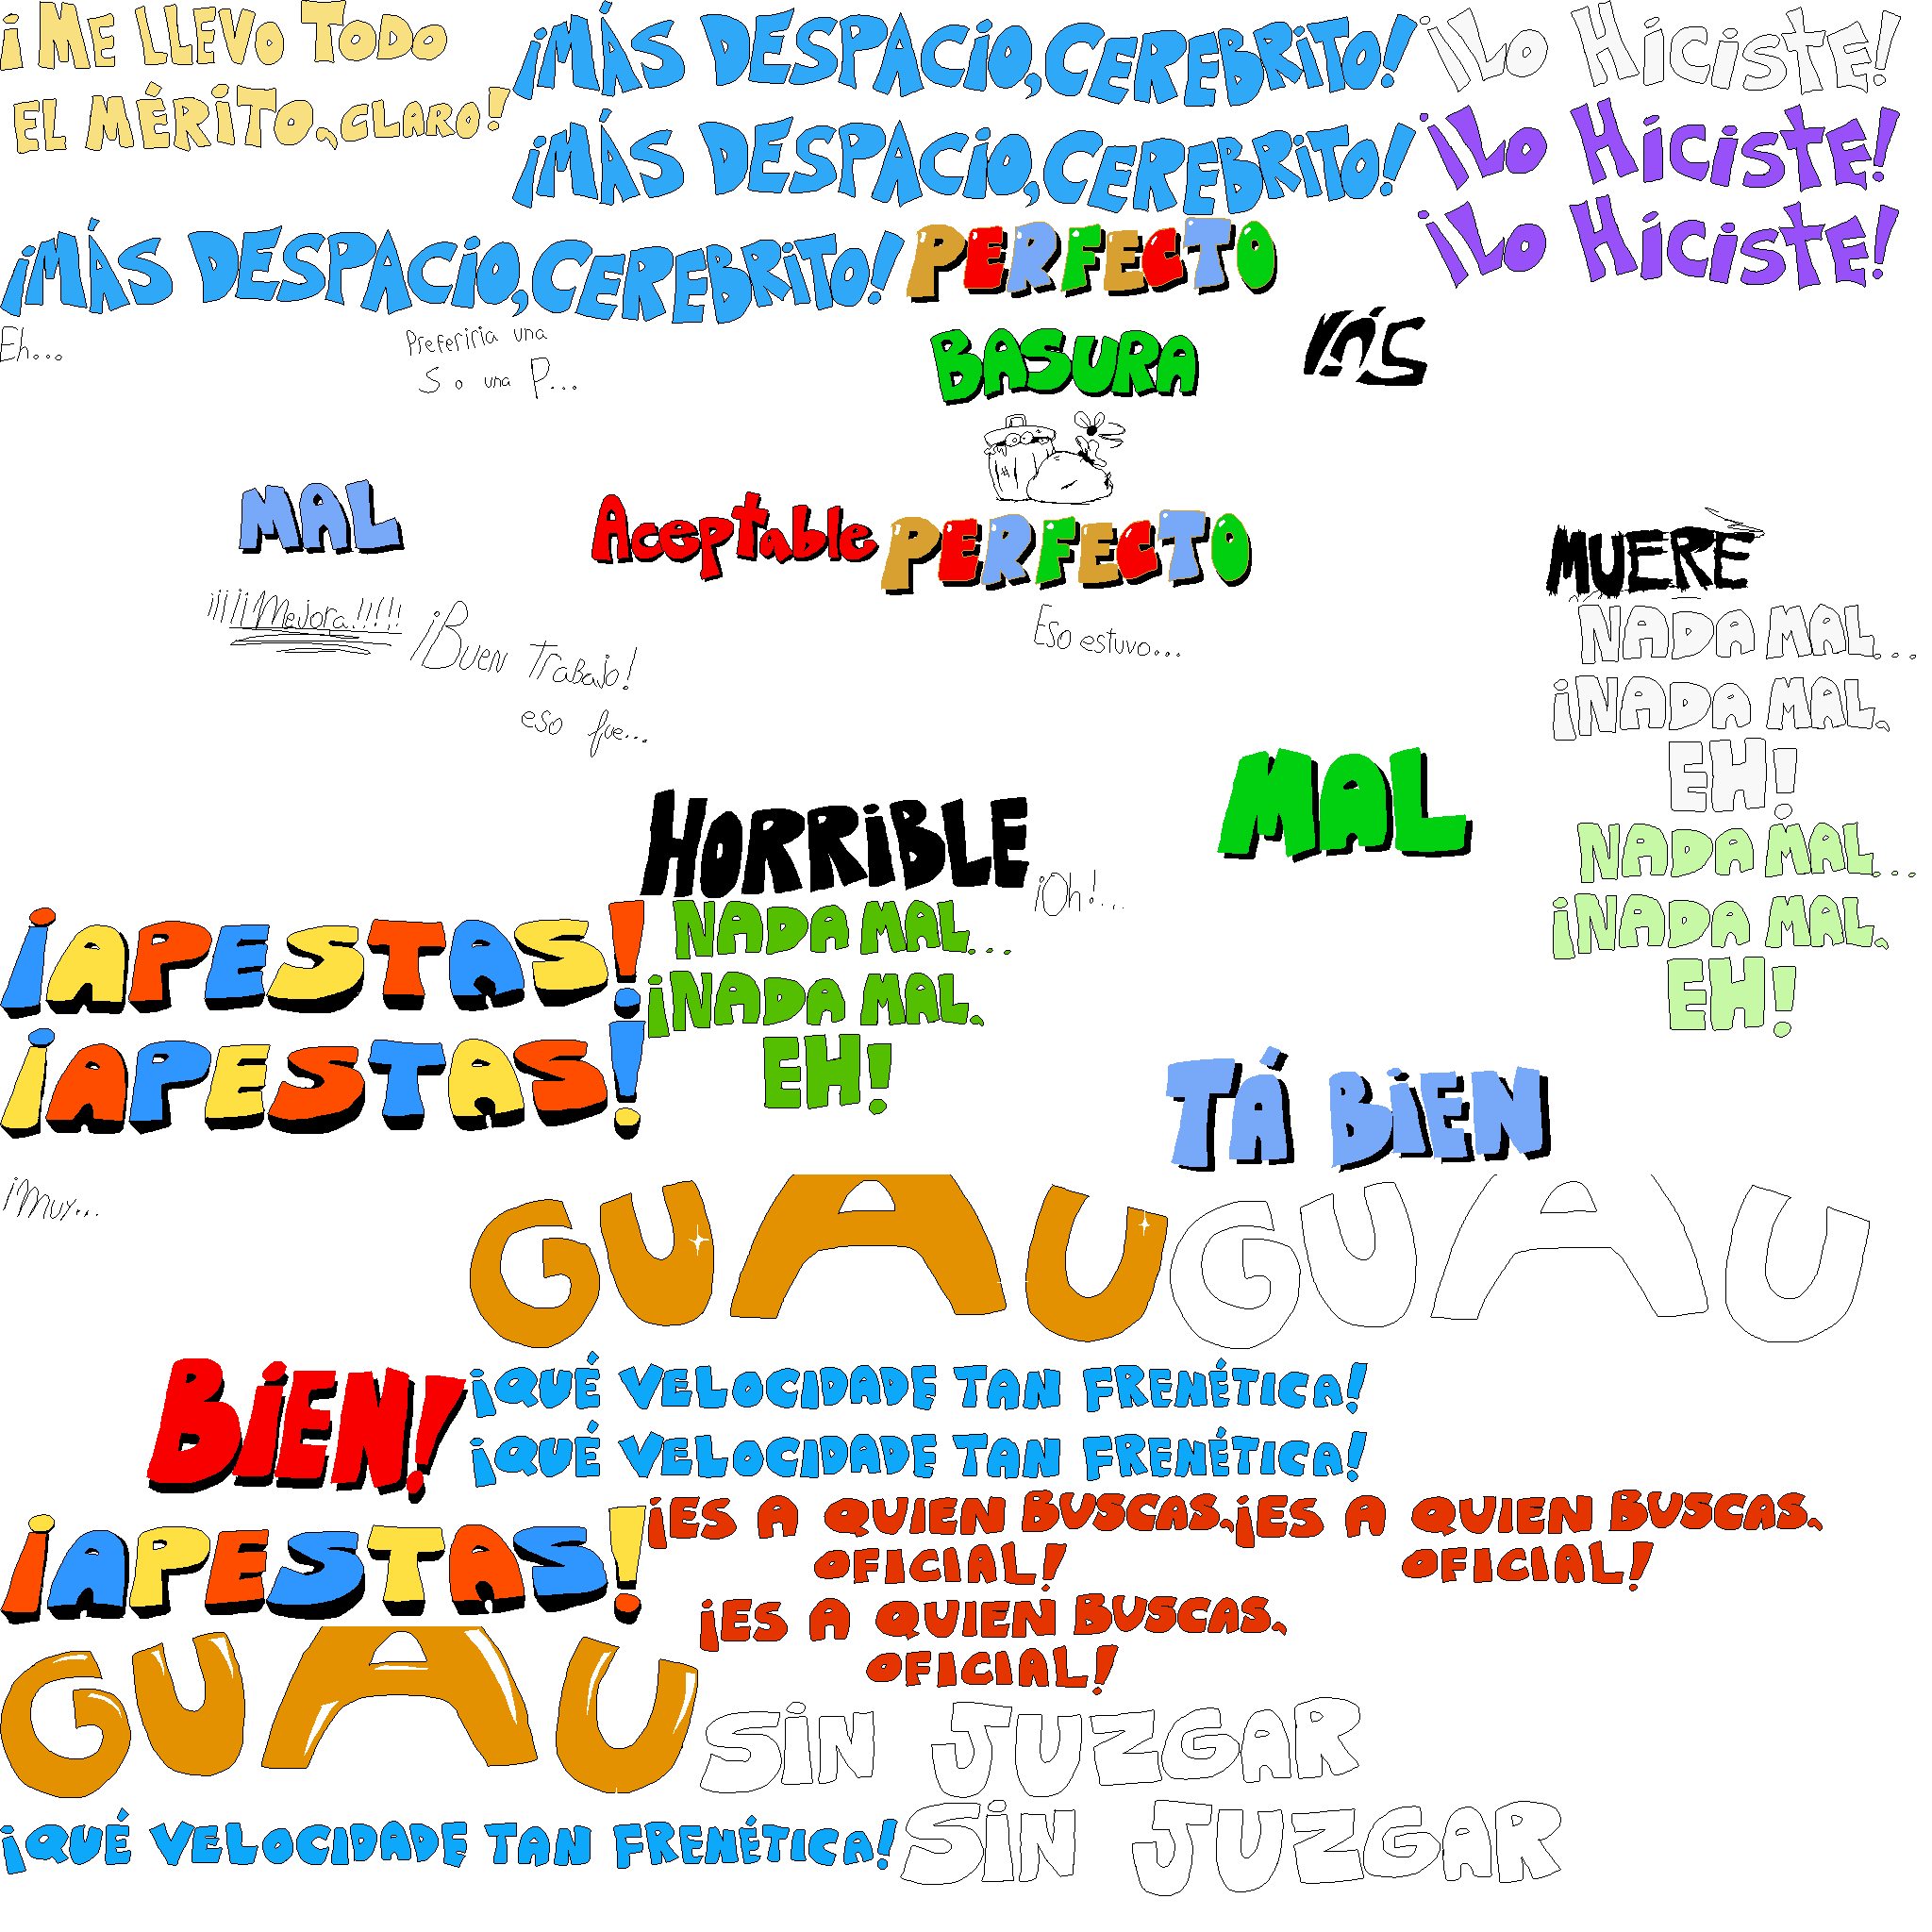 ¡ME LLEVO TODO
EL MÉRITO, CLARO!
¡MÁS DESPACIO, CEREBRITO!
¡LO HiCiSTE!
¡MÁS DESPACIO, CEREBRITO!
¡LO HiCiSTE!
¡MÁS DESPACIO, CEREBRITO!
PERFECTO
¡LO HiCiSTE!
Eh...
Preferiria una
S o una P...
BASURA
MAL
Aceptable
PERFECTO
MUERE
¡¡¡¡¡Mejora!!!!!
¡Buen Trabajo!
eso fue...
Eso estuvo...
NADA MAL...
¡NADA MAL,
EH!
MAL
HORRiBLE
¡Oh!...
NADA MAL...
¡NADA MAL,
EH!
¡APESTAS!
NADA MAL...
¡NADA MAL,
EH!
¡APESTAS!
TÁ BiEN
¡Muy...
GUAU
GUAU
BiEN!
¡QUÉ VELOCIDADE TAN FRENÉTICA!
¡QUÉ VELOCIDADE TAN FRENÉTICA!
¡ES A QUIEN BUSCAS,
OFICIAL!
¡ES A QUIEN BUSCAS,
OFICIAL!
¡APESTAS!
¡ES A QUIEN BUSCAS,
OFICIAL!
GUAU
SiN JUZGAR
¡QUÉ VELOCIDADE TAN FRENÉTICA!
SiN JUZGAR